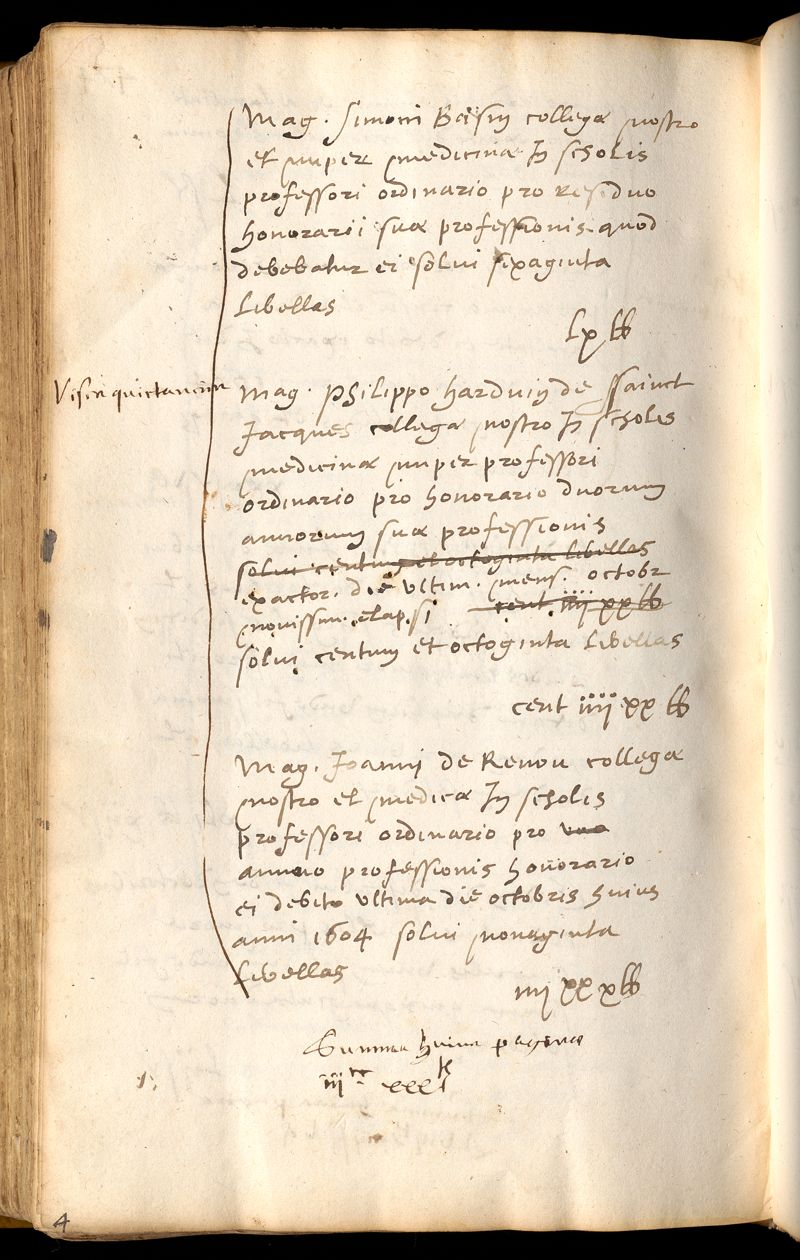 Mag. Simoni Basin collegæ nostro
et nuper medicinæ In scholis
professori ordinario pro residuo
honorarii suæ professionis quod
debebatur ei solui sexaginta
Libellas
Lx ℔
Visa quictancia
Mag. Philippo harduin de Sainct
Jacques collegæ nostro In scholis
medicinæ nuper professori
ordinario pro honorario duorum
annorum suæ professionis
solui centum et octoginta libellas
exactor. die ultim. mens. octobr
novissim. elapsi cent iiii xx ℔
solui centum et octoginta Libellas
cent iiii xx ℔
Mag. Joanni de Renou collegæ
nostro et medicæ In scholis
professori ordinario pro uno
annuo professionis honorario
ei debito ultima die octobris huius
anni 1604 solui nonaginta
Libellas
iiii xx x ℔
Summa huius paginæ
iii cc xxx ℔
4